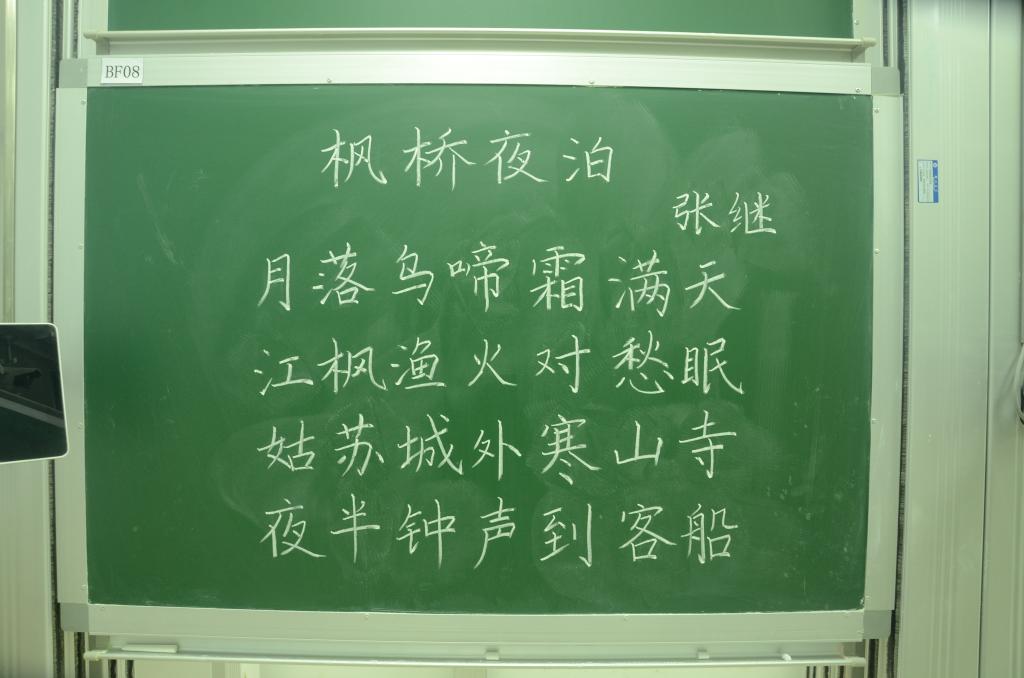 BF08
枫桥夜泊
张继
月落乌啼霜满天
江枫渔火对愁眠
姑苏城外寒山寺
夜半钟声到客船